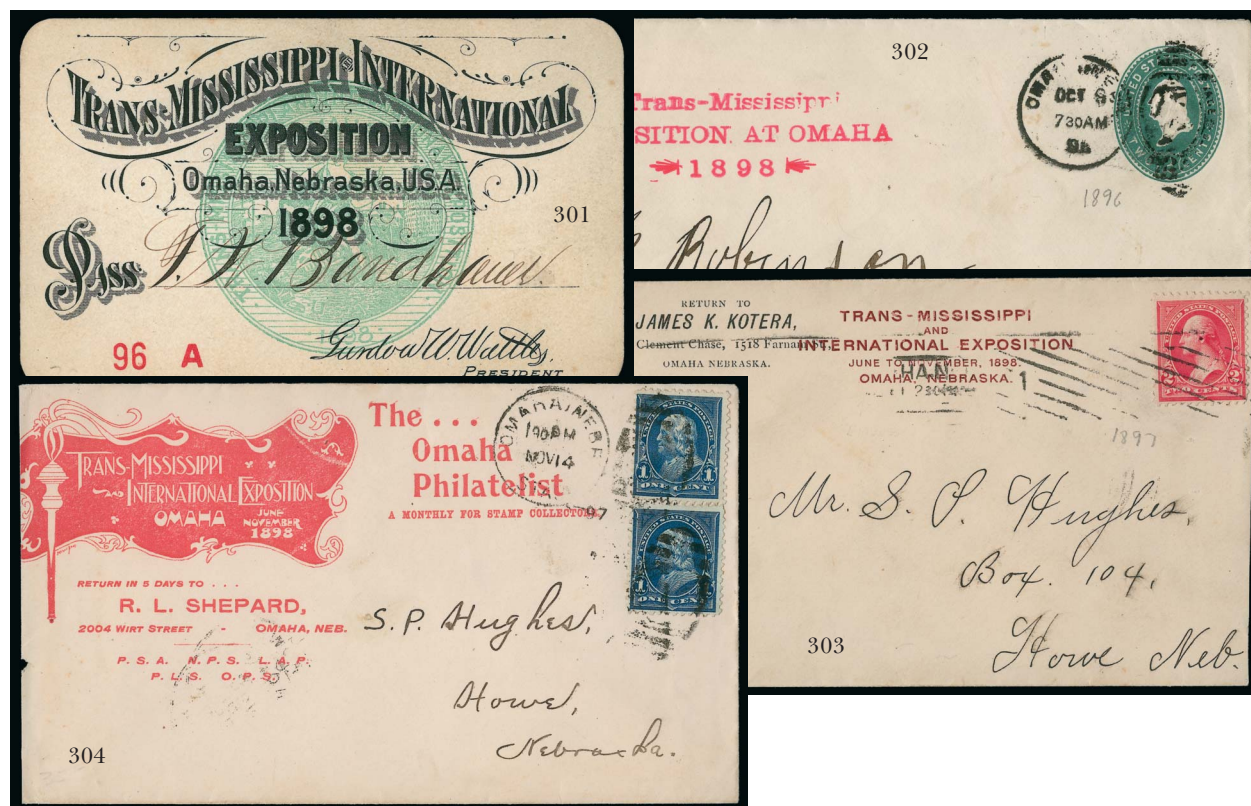 TRANS-MISSISSIPPI & INTERNATIONAL
EXPOSITION
Omaha, Nebraska, U.S.A.
1898
301
Pass
96 A
Gurdon W. Wattles,
PRESIDENT
302
Trans-Mississippi
SITION AT OMAHA
1898
OCT
730AM
1896
Robinson
RETURN TO
JAMES K. KOTERA,
Clement Chase, 1518 Farnam St.,
OMAHA NEBRASKA.
TRANS-MISSISSIPPI
AND
INTERNATIONAL EXPOSITION
JUNE TO NOVEMBER, 1898.
OMAHA, NEBRASKA.
1
2 CENTS 2
1897
Mr. S. P. Hughes,
Box. 104,
Howe Neb.
303
TRANS-MISSISSIPPI
AND INTERNATIONAL EXPOSITION
OMAHA JUNE
NOVEMBER
1898
The...
Omaha
Philatelist
A MONTHLY FOR STAMP COLLECTORS.
OMAHA, NEBR.
NOV 14
97
1 1
ONE CENT
1 1
ONE CENT
RETURN IN 5 DAYS TO . . .
R. L. SHEPARD,
2004 WIRT STREET - OMAHA, NEB.
P. S. A. N. P. S. L. A. P.
P. L. S. O. P. S.
S. P. Hughes,
Howe,
Nebraska.
304